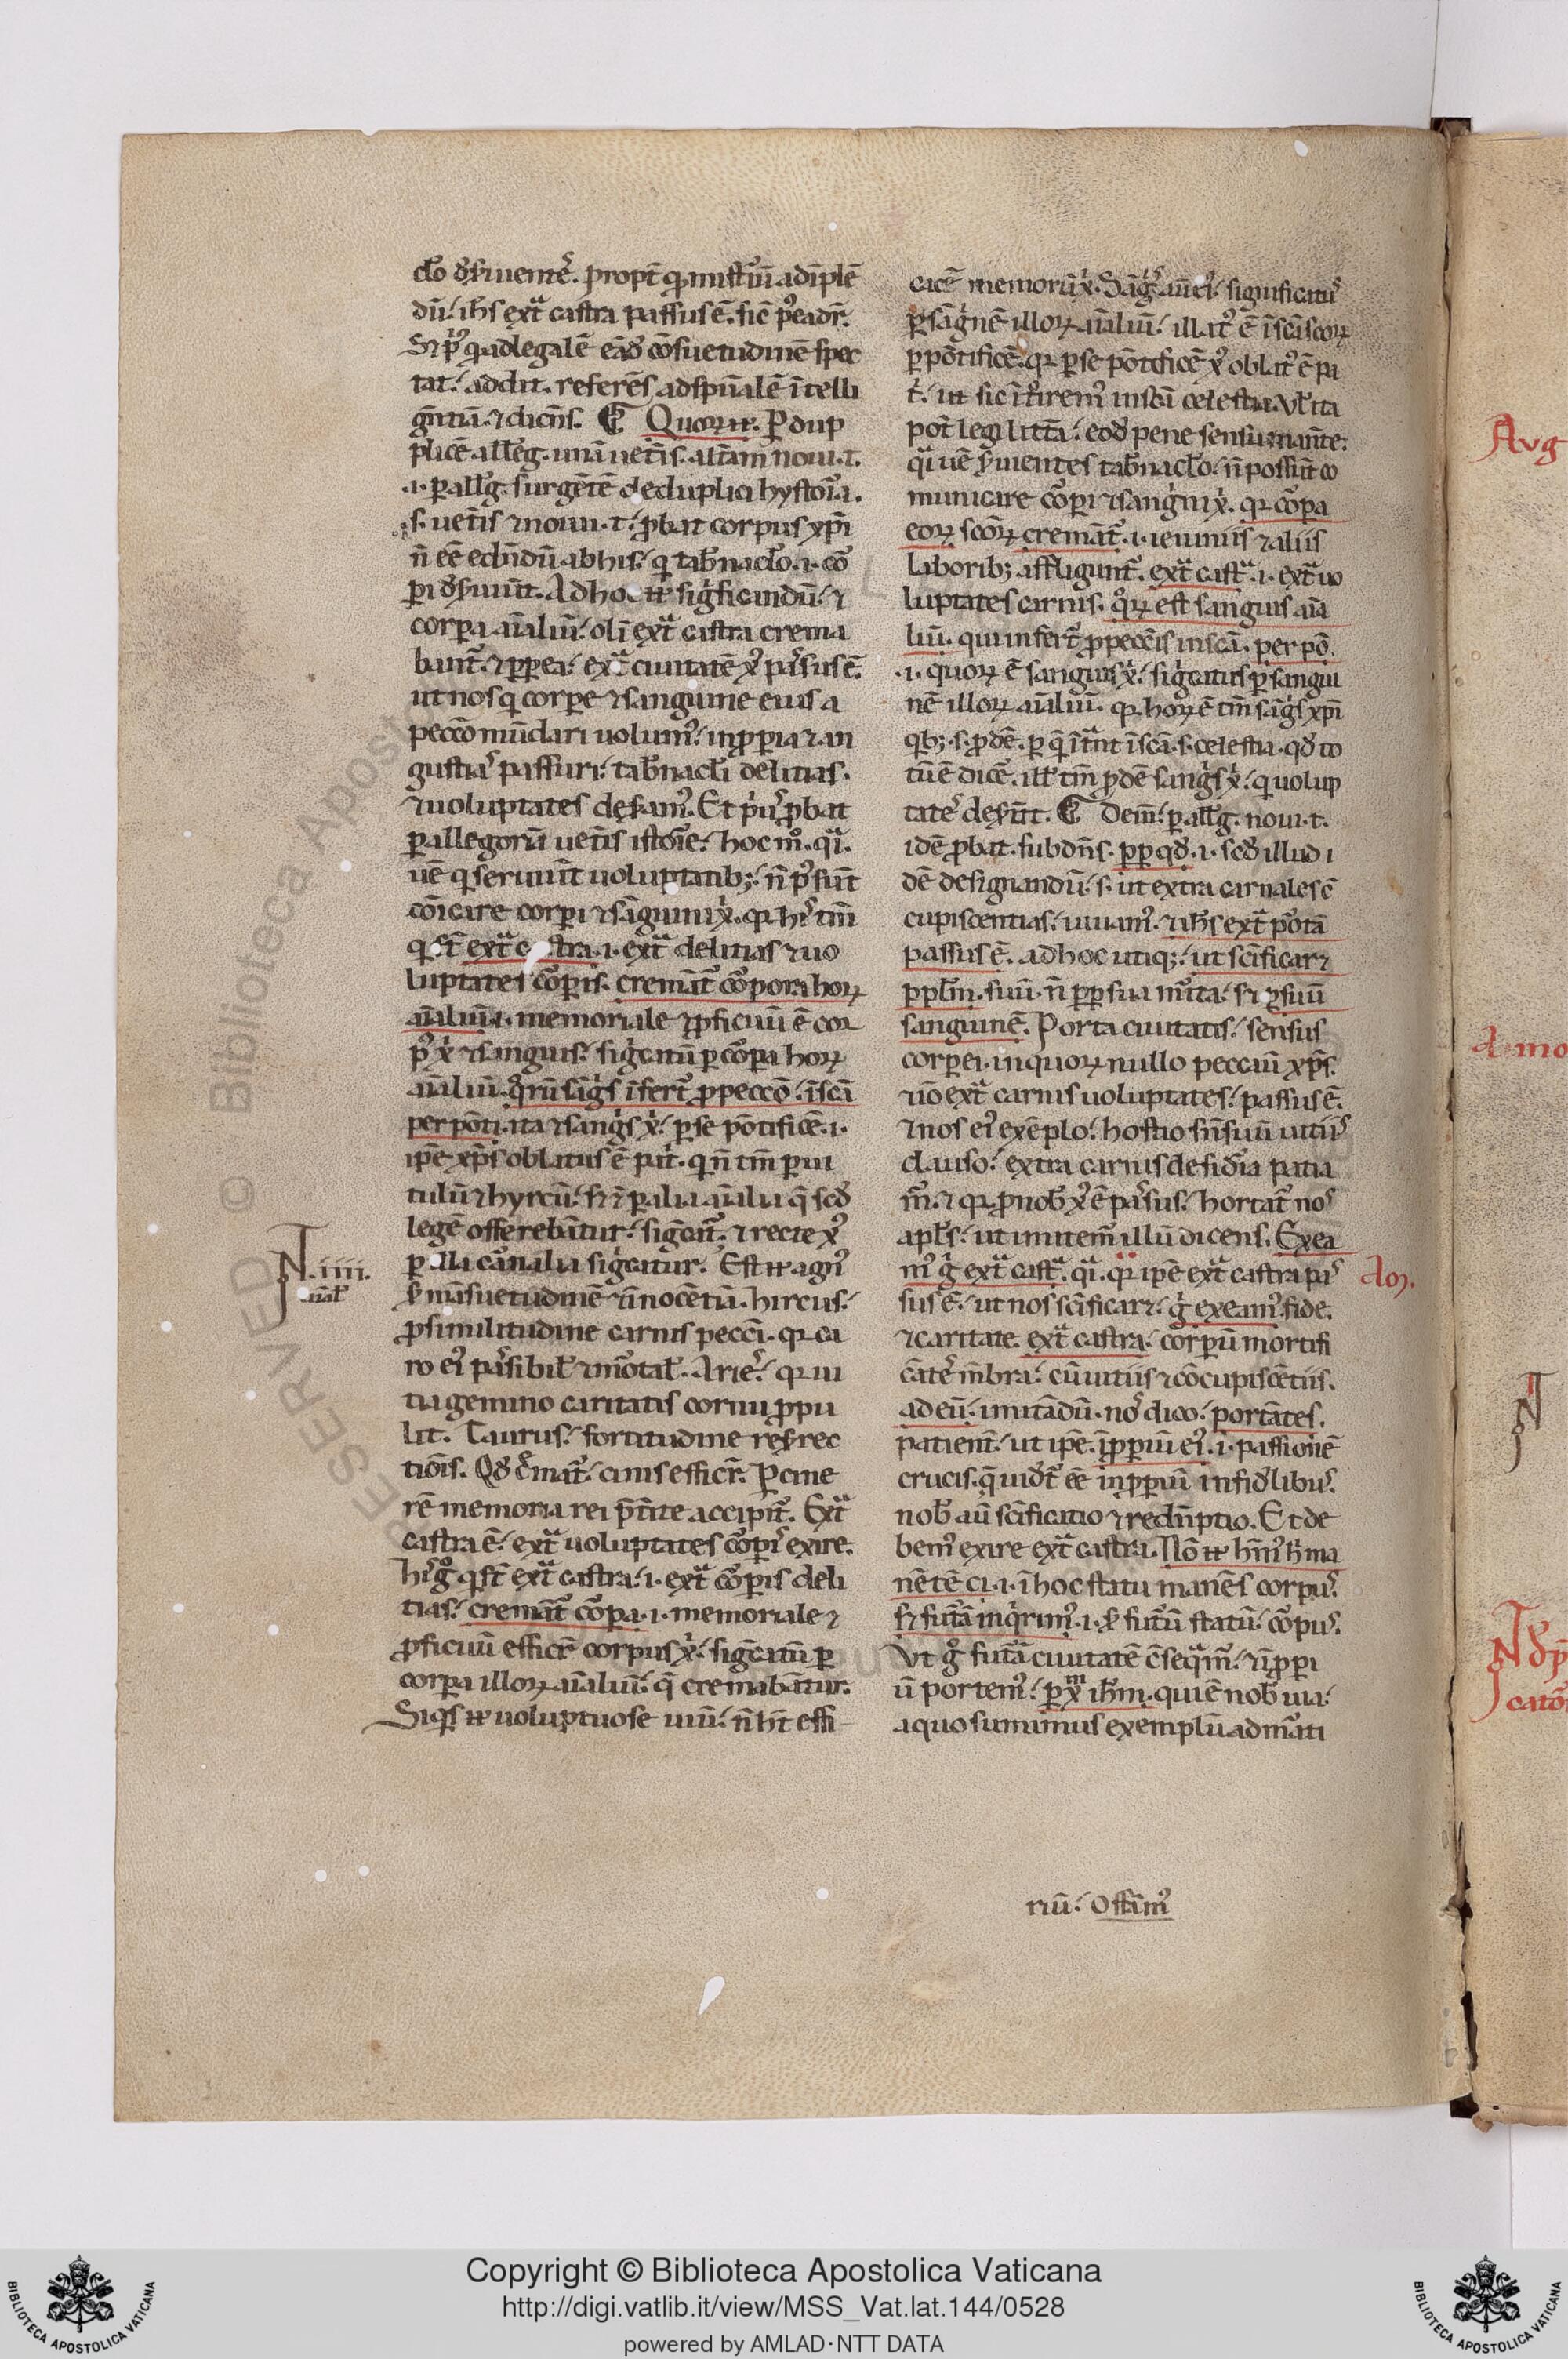 clo d'seruientē. propt̄ q. mist̾iū adīplē
dū. ih̄s ext̾ castra passus ē. sic p̾ eadr̄.
S; p̾ q̄ ad legalē eād̾ cōsuetudinē spec
tat. addit. referēs ad sp̄ualē ītelli
gn̄tiā. ⁊ dicn̄s. ¶ Quoꝝ n̄. P dup
plicē alleg. unā uet̾is. alt̾am noui. t.
.i. p all'g. surgētē de duplici hystoria.
.s. uet̾is ⁊ noui. t. ꝓbat corpus xp̄i
n̄ eē edn̄dū ab his. q̄ tab̾naclo .i. co̾
pi d'seruiūt. Ad hoc n̄ sigficandū. ⁊
corpa aīaliū. olī ext̾ castra crema
bant̾. ⁊ ꝓp ea. ext̾ ciuitatē x̾ passus ē.
ut nos q̄ corpe ⁊ sanguine eius a
pecc̄o mūdari uolum̾. inꝓpia ⁊ an
gustia passuri. tab̾nacl̄i delicias.
⁊ uoluptates des̾am̾. Et p̾us ꝓbat
p allegoriā uet̾is istorie. hoc mo̾. q̄i.
uē q̄ seruiūt uoluptatib;. n̄ p̾sūt
cōicare corpi ⁊ sāguini x̾. q̄ hi̾ tm̄
q̄ st̄ ext̾ castra .i. ext̾ delicias ⁊ uo
luptates co̾pis. cremāt̾ co̾pora hoꝝ
aīaliū .i. memoriale ⁊ ꝓficuū ē cor
p̾ x̾ ⁊ sanguis. sig̾catū p co̾pa hoꝝ
aīaliū. q̾rū sāg̾s īfert̾ ꝓ pecc̄o. ī sc̄a
per pōti. ita ⁊ sang̾s x̾. p se pōtificē .i.
ip̄e xp̄s oblatus ē pat̾. q̄ n̄ tm̄ p ui
tulū ⁊ hyrcū. s; ⁊ p alia aīalia q̄ scd̾
legē offerebātur. sig̾cat̾. ⁊ recte x̾
p illa oīa aīalia sig̾catur. Est n̄ agn̾
ꝓ māsuetudinē ⁊ īnocētiā. hircus.
ꝓ similitudine carnis pecc̄i. q̄ ca
ro ei̾ passibil' ⁊ mo̾tal'. Aries. q̄ ui
tia gemino caritatis cornu ꝓpu
lit. Taurus. fortitudine resurrec
tiōis. Qd̾ cremat̾. cinis efficit̾. P cine
rē memoria rei p̄t̾ite accipit̾. Ext̾
castra ē. ext̾ uoluptates co̾pis exire.
Hi̾ g̾ q̄ st̄ ext̾ castra .i. ext̾ co̾pis deli
tias. cremāt̾ co̾pa .i. memoriale ⁊
ꝓficuū efficit̾ corpus x̾. sig̾catū p
corpa illoꝝ aīaliū. q̄ cremabātur.
Siq̾s n̄ uoluptuose uiuit. n̄ h̾t effi-
N. iiii.
aīal'
cacē memoriā x̾. Sāg̾s aūt ei̾. significatus
p sāg̾nē illoꝝ aīaliū. illat̾ ē ī sc̄a scōꝝ
p pōtificē. q̄ p se pōtificē x̾ oblat̾ ē pa
t̾. ut sic īt̾irem̾ in sc̄a celestia. Vl' ita
pot̄ legi litt̾a. eod̾ pene sensu manēte.
q̄i uē s̾uientes tab̾naclo. n̄ possūt co
municare co̾pi ⁊ sang̾ni x̾. q̄ co̾pa
eoꝝ scōꝝ cremāt̾ .i. ieiuniis ⁊ aliis
laborib; affligunt̾. ext̾ cast̾ .i. ext̾ uo
luptates carnis. q̾ꝝ est sanguis aīa
liū. qui infert̾ ꝓ pecc̄is in sc̄a. per pō.
.i. quoꝝ ē sanguis x̾. sig̾catus p sangui
nē illoꝝ aīaliū. q̄ hoꝝ ē tm̄ sāg̾s xp̄i
q̄b;. s. ꝓdē. p q̄ ītrāt ī sc̄a. s. celestia. qd̾ to
tū ē dicē. ill' tm̄ ꝓdē sang̾s x̾. q̄ uolup
tates des̾ūt. ¶ Dem̄. p all'g. noui. t.
idē ꝓbat. subdn̄s. ꝓp qd̾ .i. scd̾ illud i
dē designandū. s. ut extra carnales cō
cupiscentias. uiuam̾. ⁊ ih̄s ext̾ po̾tā
passus ē. ad hoc utiq;. ut sc̄ificar;
ppl̄m. suū. n̄ ꝓp sua m̾ita. s; ꝓ suū
sanguinē. Porta ciuitatis. sensus
corpei. in quoꝝ nullo peccauit xp̄s.
⁊ iō ext̾ carnis uoluptates. passus ē.
⁊ nos ei̾ exēplo. hostio sn̄suū uitiis
clauso. extra carnis desid̾ia patia
m̾. ⁊ q̄ ꝓ nob̾ x̾ ē passus. hortat̾ nos
apl̄s. ut imitem̾ illū dicens. Exea
m̾ g̾ ext̾ cast̾. q̄i. q̄ ip̄e ext̾ castra pas
sus ē. ut nos sc̄ificar;. g̾ exeam̾. fide.
⁊ caritate. ext̾ castra. corpū mortifi
cātes mēbra. cū uitiis ⁊ cōcupiscētiis.
ad eū. imitādū. nos dico. portātes.
patient̾. ut ip̄e. īꝓpiū ei̾ .i. passionē
crucis. q̄ uidet̾ eē inꝓpiū infid̾libus.
nob̾ aūt sc̄ificatio ⁊ redēptio. Et de
bem̾ exire ext̾ castra. Nō n̄ h̄m̾ h̾ ma
nētē ci .i. ī hoc statu manēs corpus.
s; futurā inq̾rim̾ .i. s; futurū statū. co̾pus.
Vt g̾ futurā ciuitatē cōseq̄m̾. ⁊ īꝓpi
ū portem̾. p x̾m ih̄m. qui ē nob̾ uia.
a quo sumimus exemplū ad m̾ati
Ao.
riū. Offeram̾
Aug
Amo
N
N d'p
cato
Copyright © Biblioteca Apostolica Vaticana
http://digi.vatlib.it/view/MSS_Vat.lat.144/0528
powered by AMLAD·NTT DATA
BIBLIOTECA APOSTOLICA VATICANA
BIBLIOTECA APOSTOLICA VATICANA